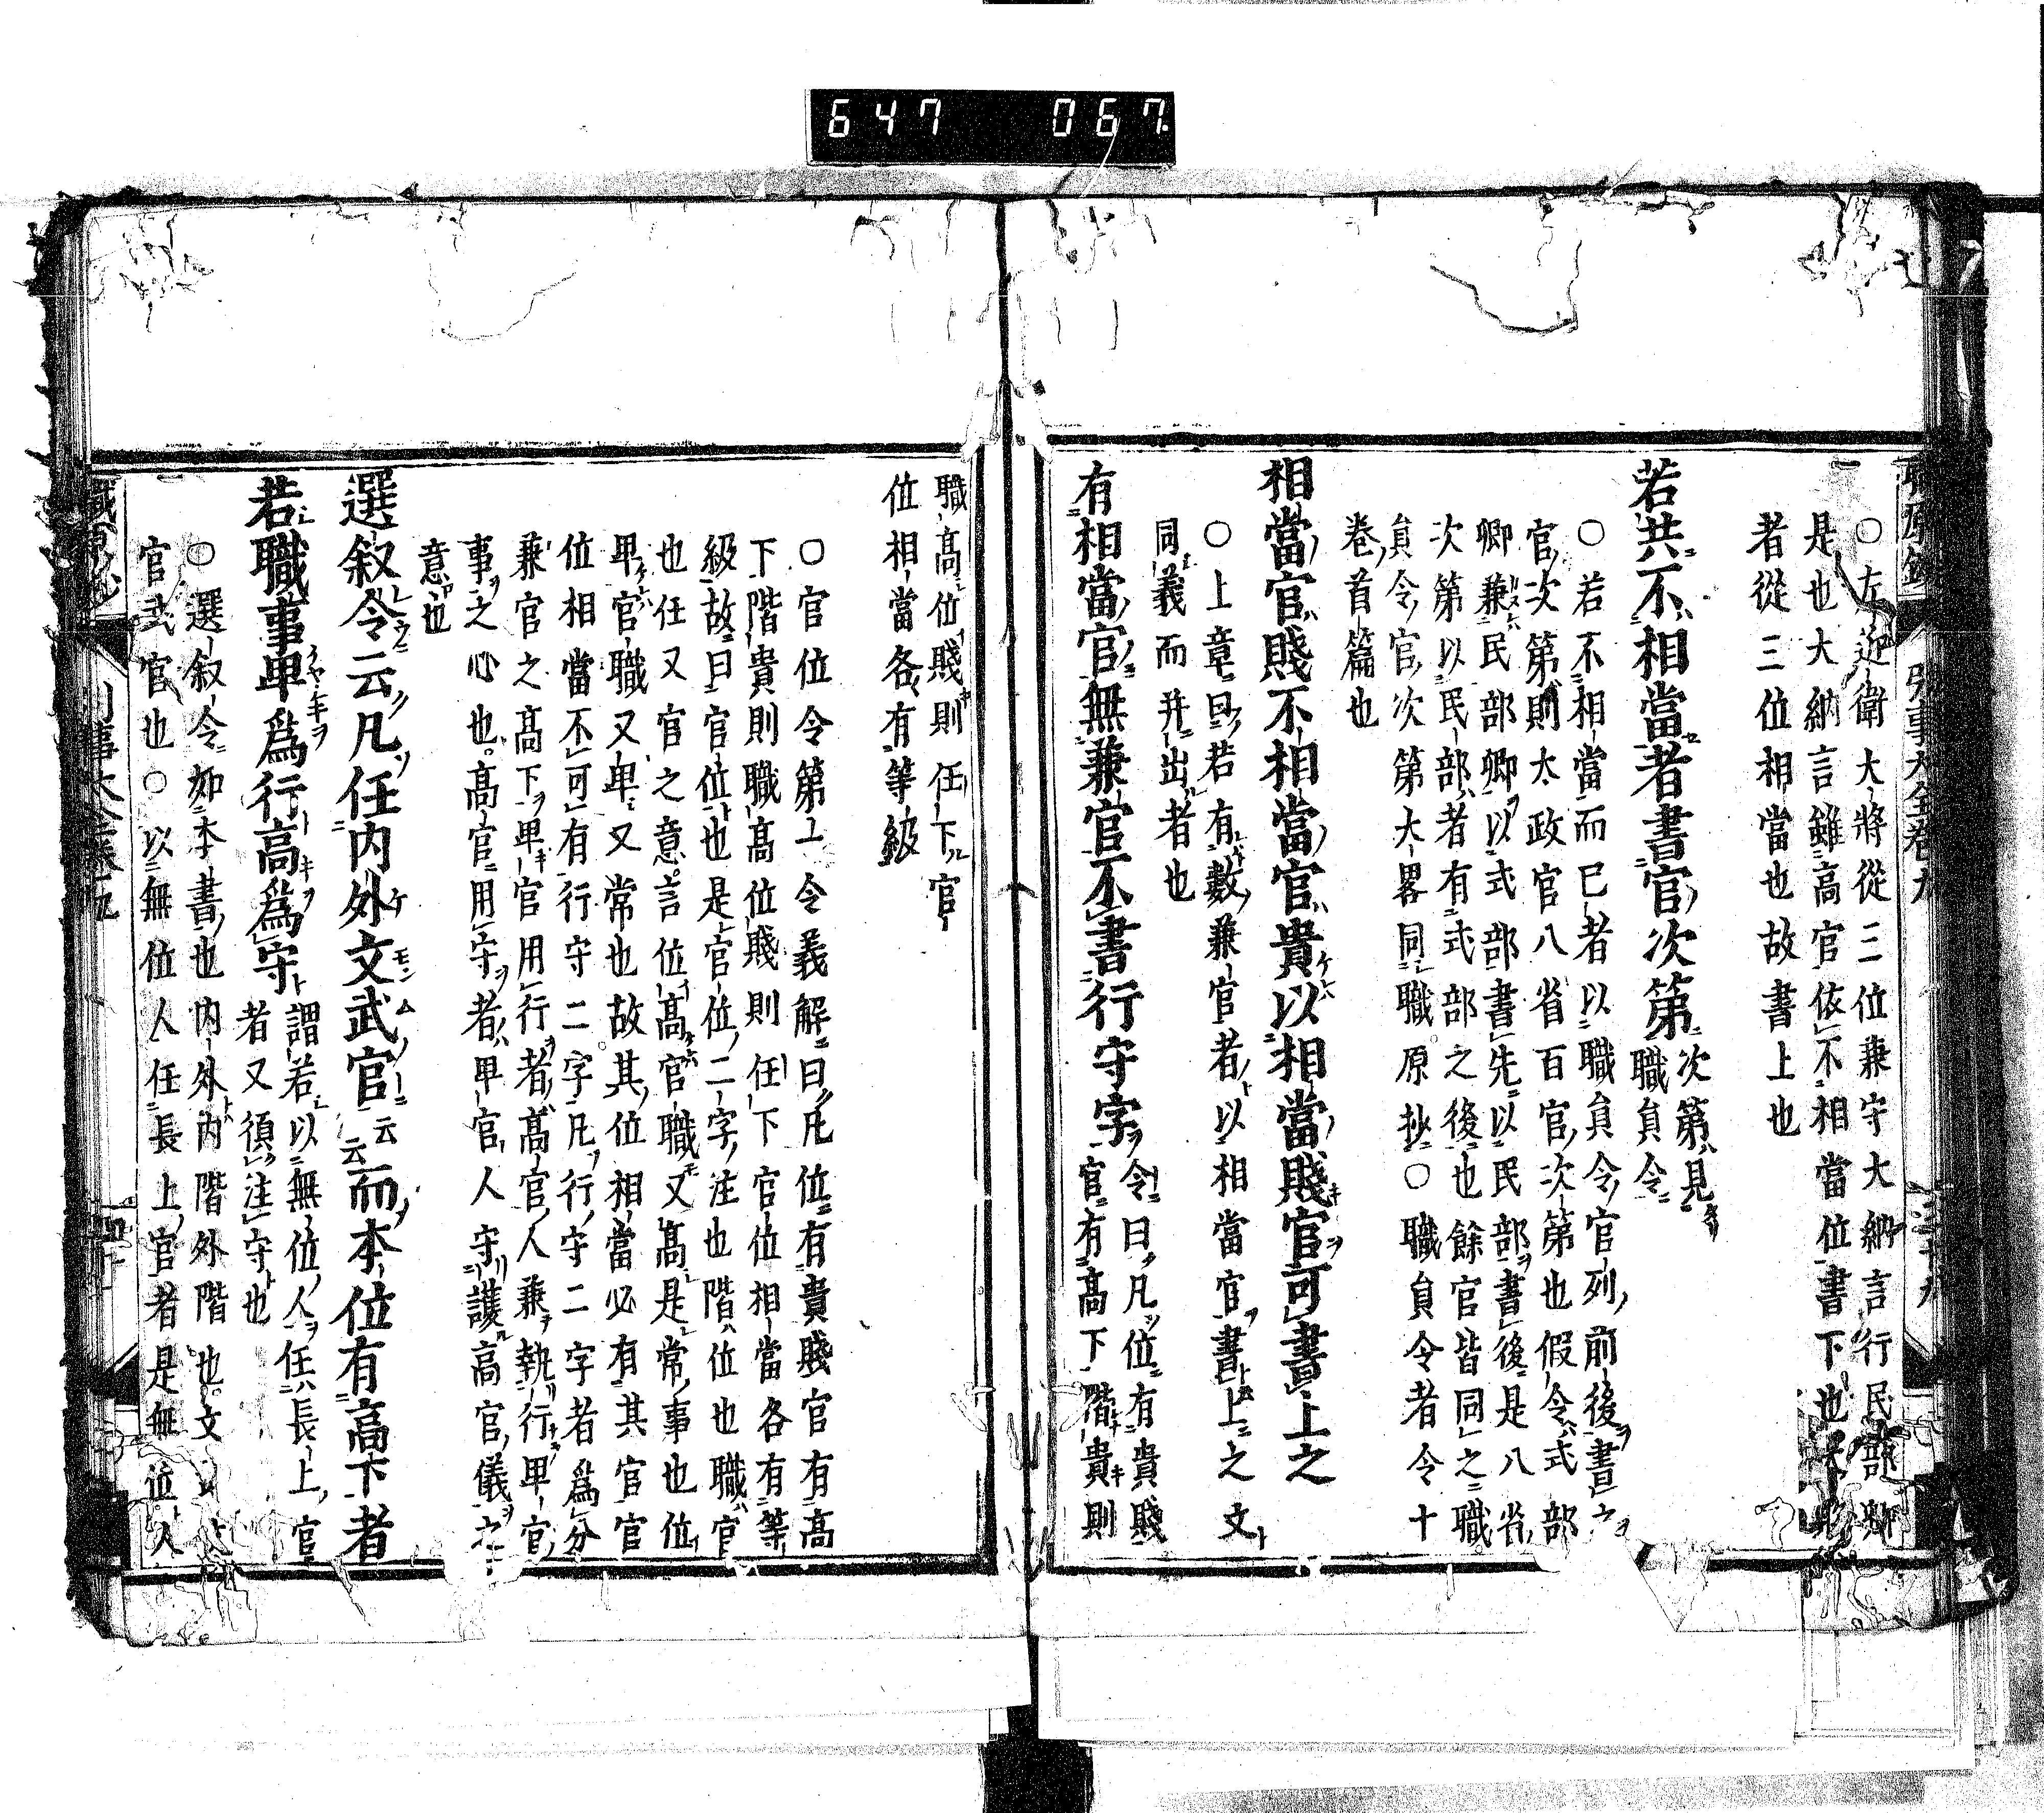 647 067
○左近衛大將從三位兼守大納言行民部卿
是也大納言雖高官依不相當位書下也
者從三位相當也故書上也
若共不相當者書官次第次第見
職員令
○若不相當而已者以職員令官列前後書
官次第則太政官八省百官次第也假令式部
卿兼民部卿以式部書先以民部書後是八省
次第以民部者有式部之後也餘官皆同之職
員令官次第大畧同職原抄○職員令者令十
卷首篇也
相當官賤不相當官貴以相當賤官可書上之
○上章曰若有數兼官者以相當官書上之文
同義而并出者也
有相當官無兼官不書行守字令曰凡位有貴賤
官有高下階貴則
職高位賤則任下官
位相當各有等級
○官位令第一令義解曰凡位有貴賤官有高
下階貴則職高位賤則任下官位相當各有等
級故曰官位也是官位二字注也階位也職官
也任又官之意言位高官職又高是常事也位
卑官職又卑又常也故其位相當必有其官官
位相當不可有行守二字凡行守二字者爲分
兼官之高下卑官用行者高官人兼執行卑官
事之心也高官用守者卑官人守護高官儀之
意也
選叙令云凡任内外文武官云云而本位有高下者
若職事卑爲行高爲守謂若以無位人任長上官
者又須注守也
○選叙令如本書也内外内階外階也文
官武官也○以無位人任長上官者是無位人